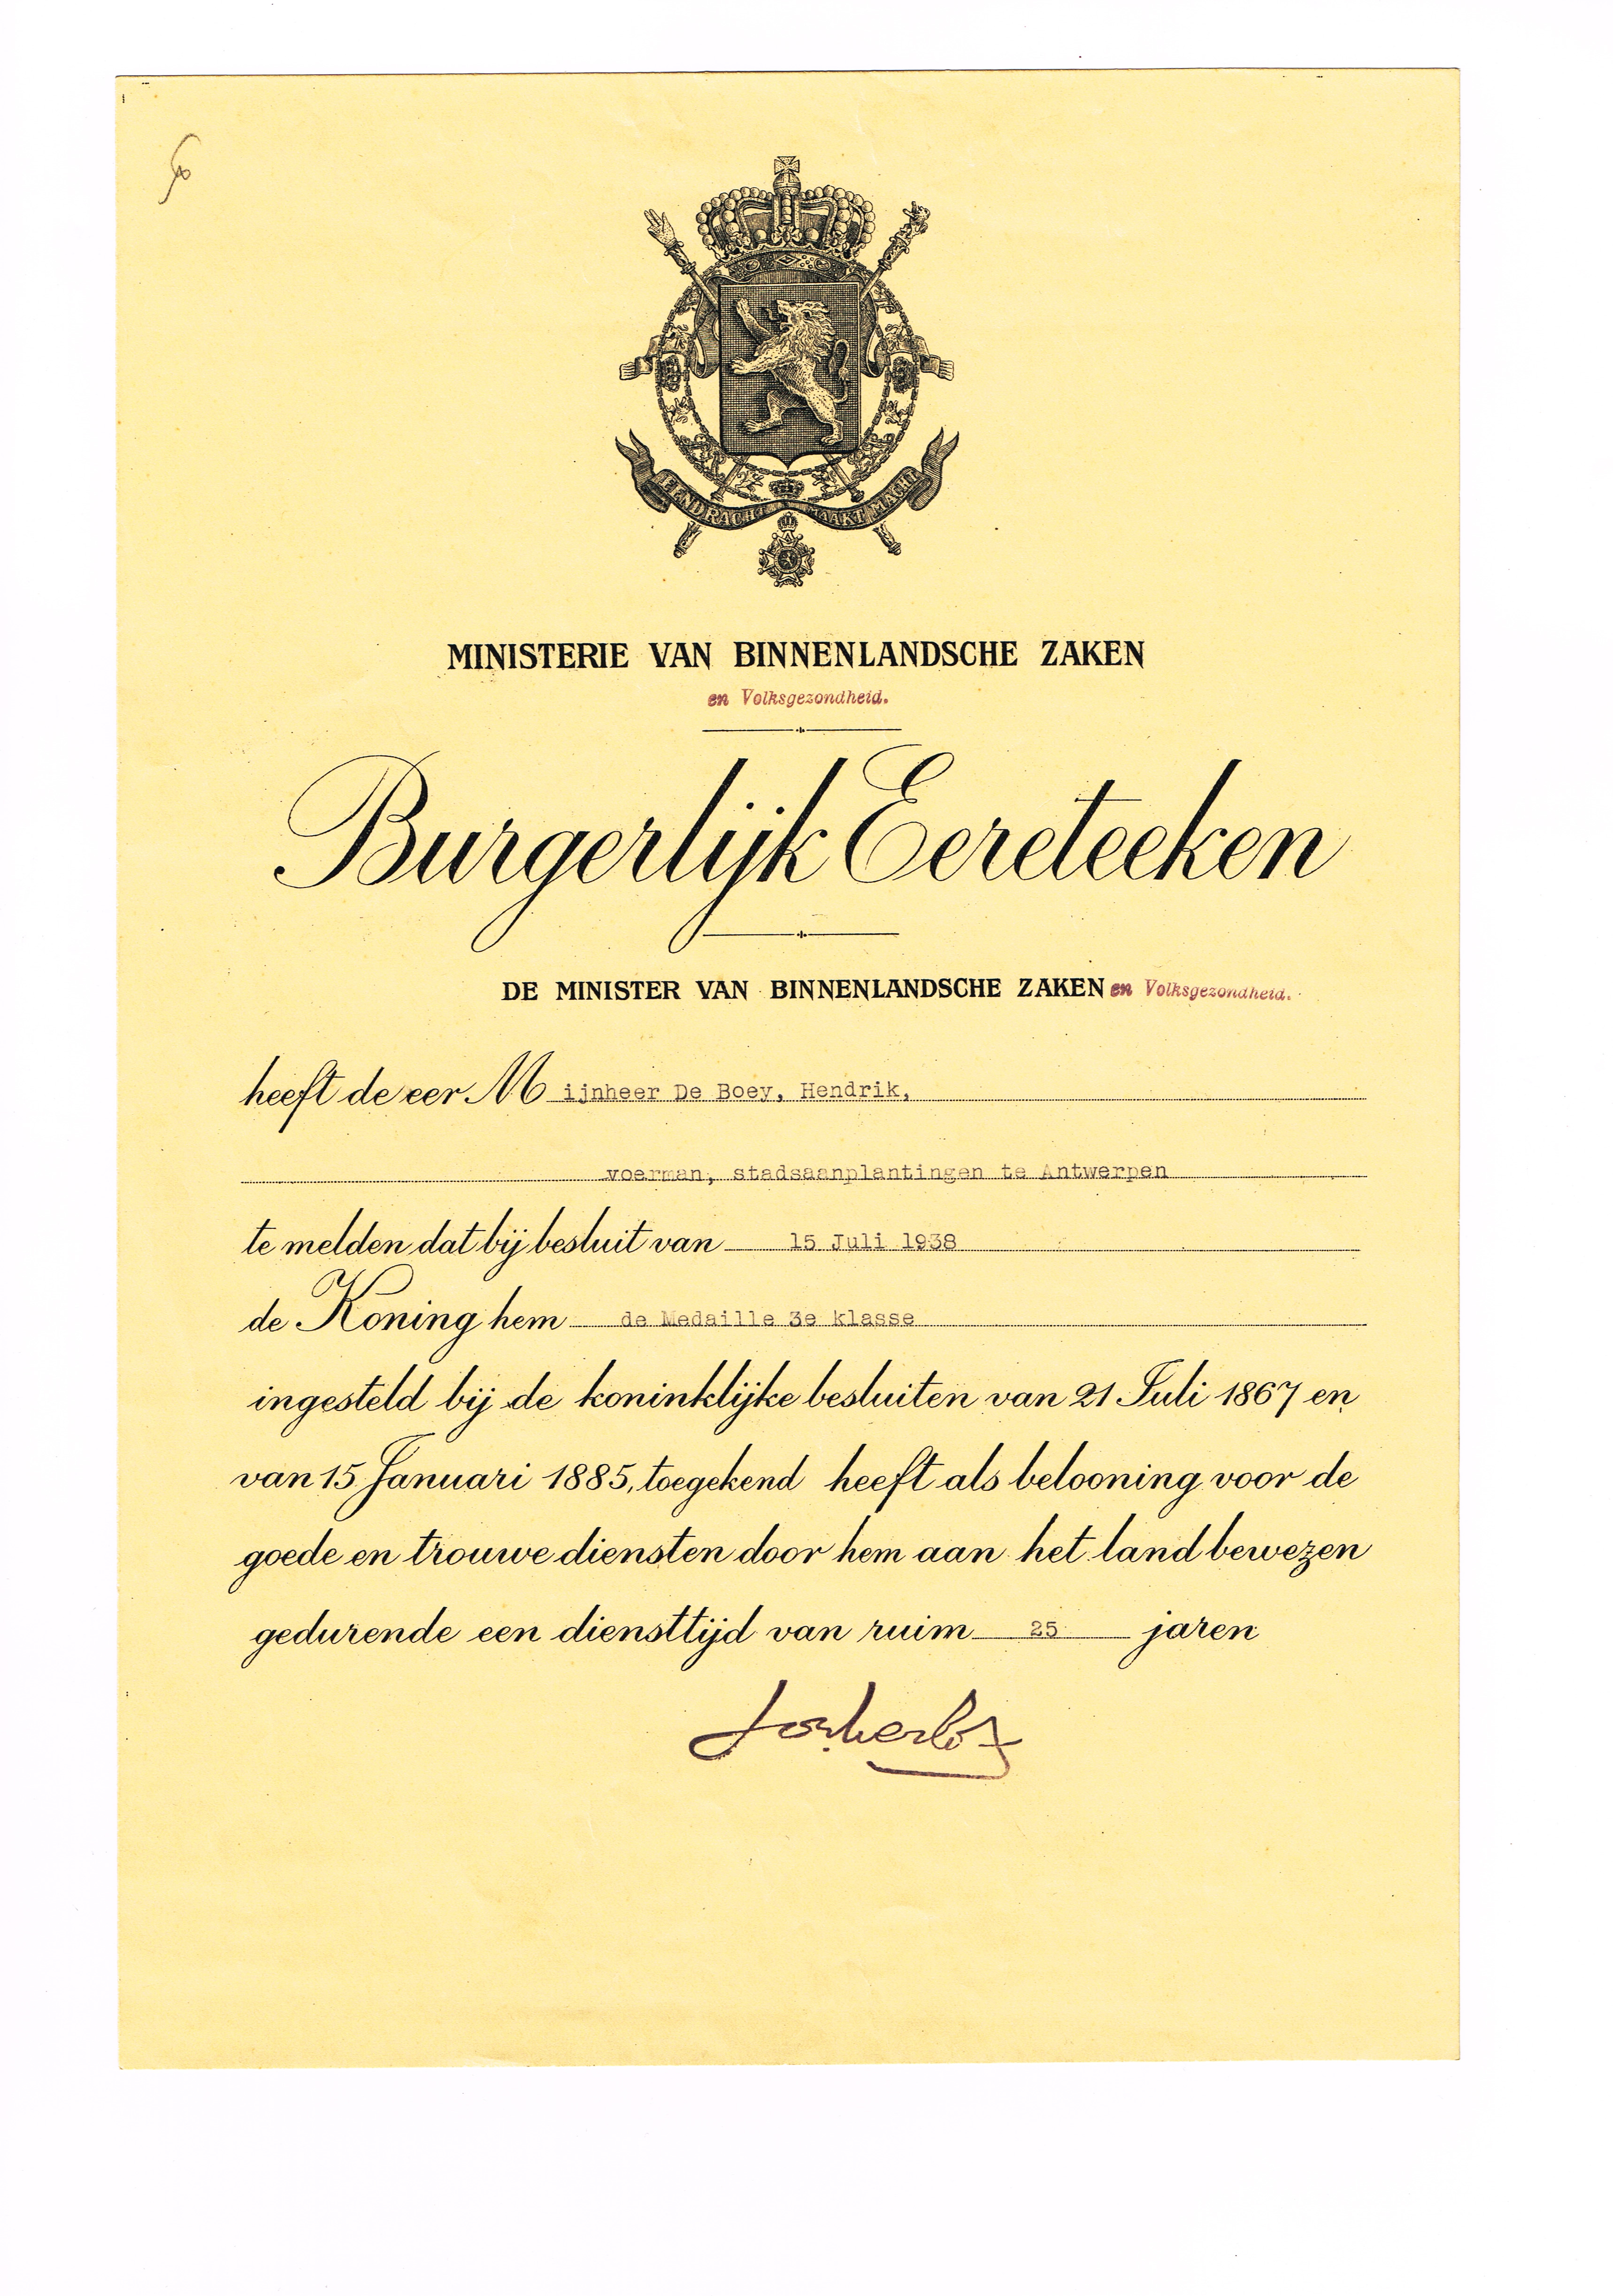 EENDRACHT MAAKT MACHT
MINISTERIE VAN BINNENLANDSCHE ZAKEN
en Volksgezondheid.
Burgerlijk Eereteeken
DE MINISTER VAN BINNENLANDSCHE ZAKEN en Volksgezondheid.
heeft de eer Mijnheer De Boey, Hendrik,
voerman, stadsaanplantingen te Antwerpen
te melden dat bij besluit van 15 Juli 1938
de Koning hem de Medaille 3e klasse
ingesteld bij de koninklijke besluiten van 21 Juli 1867 en
van 15 Januari 1885, toegekend heeft als belooning voor de
goede en trouwe diensten door hem aan het land bewezen
gedurende een diensttijd van ruim 25 jaren